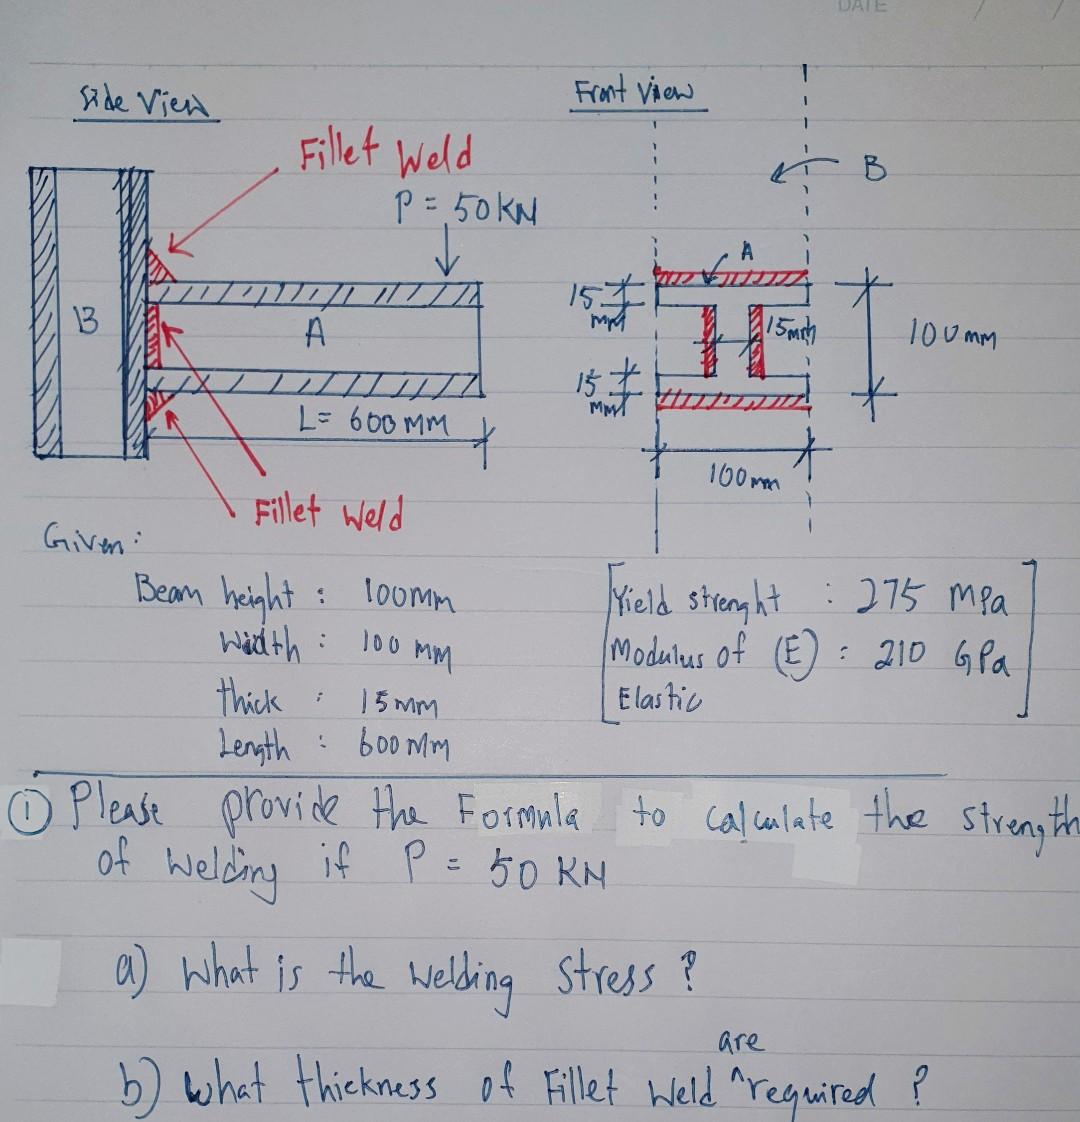 DATE / /
Side View
Front View
Fillet Weld
P = 50 KN
B
A
15
mm
15mm
100mm
B
A
15
mm
L= 600 MM
100mm
Fillet Weld
Given:
Beam height : 100mm
Width : 100 mm
thick : 15mm
Length : 600 mm
Yield strenght : 275 mpa
Modulus of (E) : 210 GPa
Elastic
① Please provide the Formula to calculate the strength
of welding if P = 50 KN
a) What is the welding stress ?
are
b) What thickness of Fillet Weld ^required ?